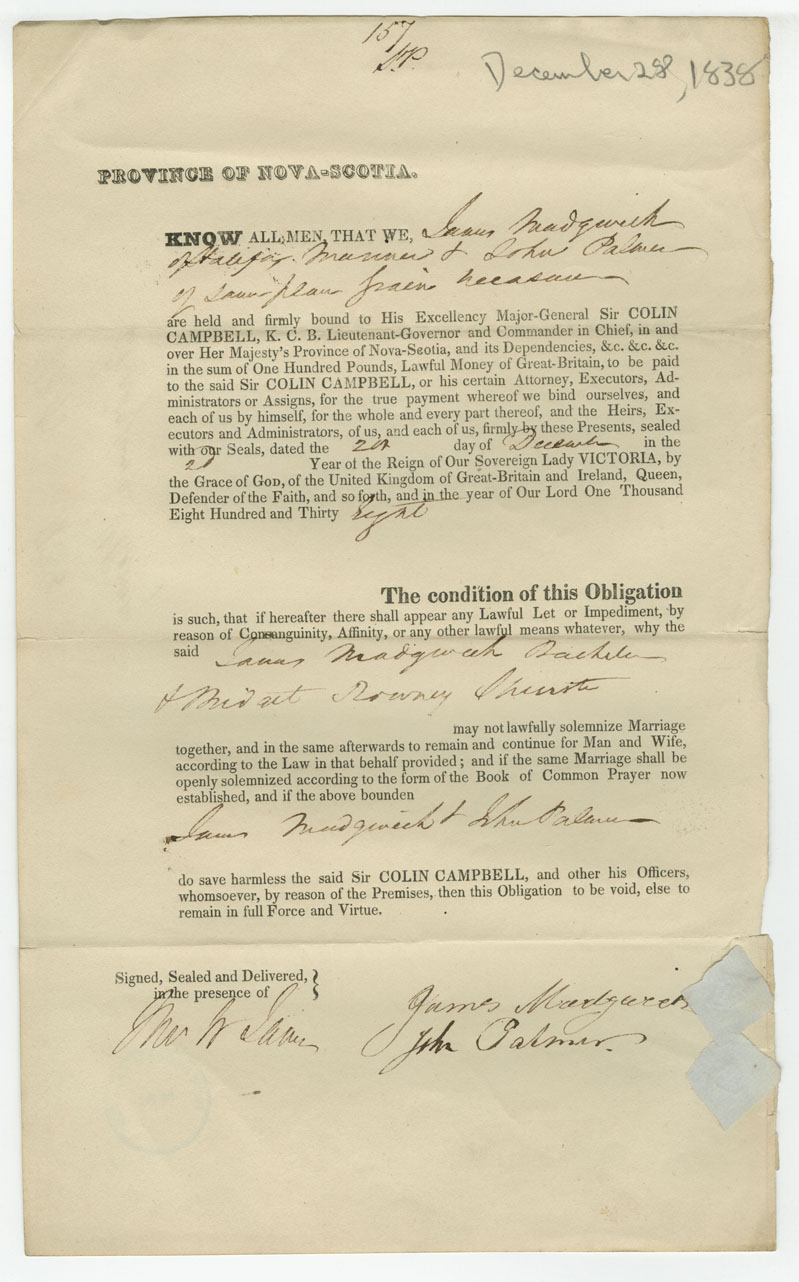 157
December 28, 1838
PROVINCE OF NOVA-SCOTIA.
KNOW ALL MEN, THAT WE, James Madgwick
of Halifax Mariner & John Palmer
of same place Grain Measurer
are held and firmly bound to His Excellency Major-General Sir COLIN
CAMPBELL, K. C. B. Lieutenant-Governor and Commander in Chief, in and
over Her Majesty's Province of Nova-Scotia, and its Dependencies, &c. &c. &c.
in the sum of One Hundred Pounds, Lawful Money of Great-Britain, to be paid
to the said Sir COLIN CAMPBELL, or his certain Attorney, Executors, Ad-
ministrators or Assigns, for the true payment whereof we bind ourselves, and
each of us by himself, for the whole and every part thereof, and the Heirs, Ex-
ecutors and Administrators, of us, and each of us, firmly by these Presents, sealed
with our Seals, dated the day of December in the
2d Year of the Reign of Our Sovereign Lady VICTORIA, by
the Grace of GOD, of the United Kingdom of Great-Britain and Ireland, Queen,
Defender of the Faith, and so forth, and in the year of Our Lord One Thousand
Eight Hundred and Thirty Eight
The condition of this Obligation
is such, that if hereafter there shall appear any Lawful Let or Impediment, by
reason of Consanguinity, Affinity, or any other lawful means whatever, why the
said James Madgwick Bachelor
& Bridget Rowney Spinster
may not lawfully solemnize Marriage
together, and in the same afterwards to remain and continue for Man and Wife,
according to the Law in that behalf provided; and if the same Marriage shall be
openly solemnized according to the form of the Book of Common Prayer now
established, and if the above bounden
James Madgwick & John Palmer
do save harmless the said Sir COLIN CAMPBELL, and other his Officers,
whomsoever, by reason of the Premises, then this Obligation to be void, else to
remain in full Force and Virtue.
Signed, Sealed and Delivered,
in the presence of
James Madgwick
John Palmer